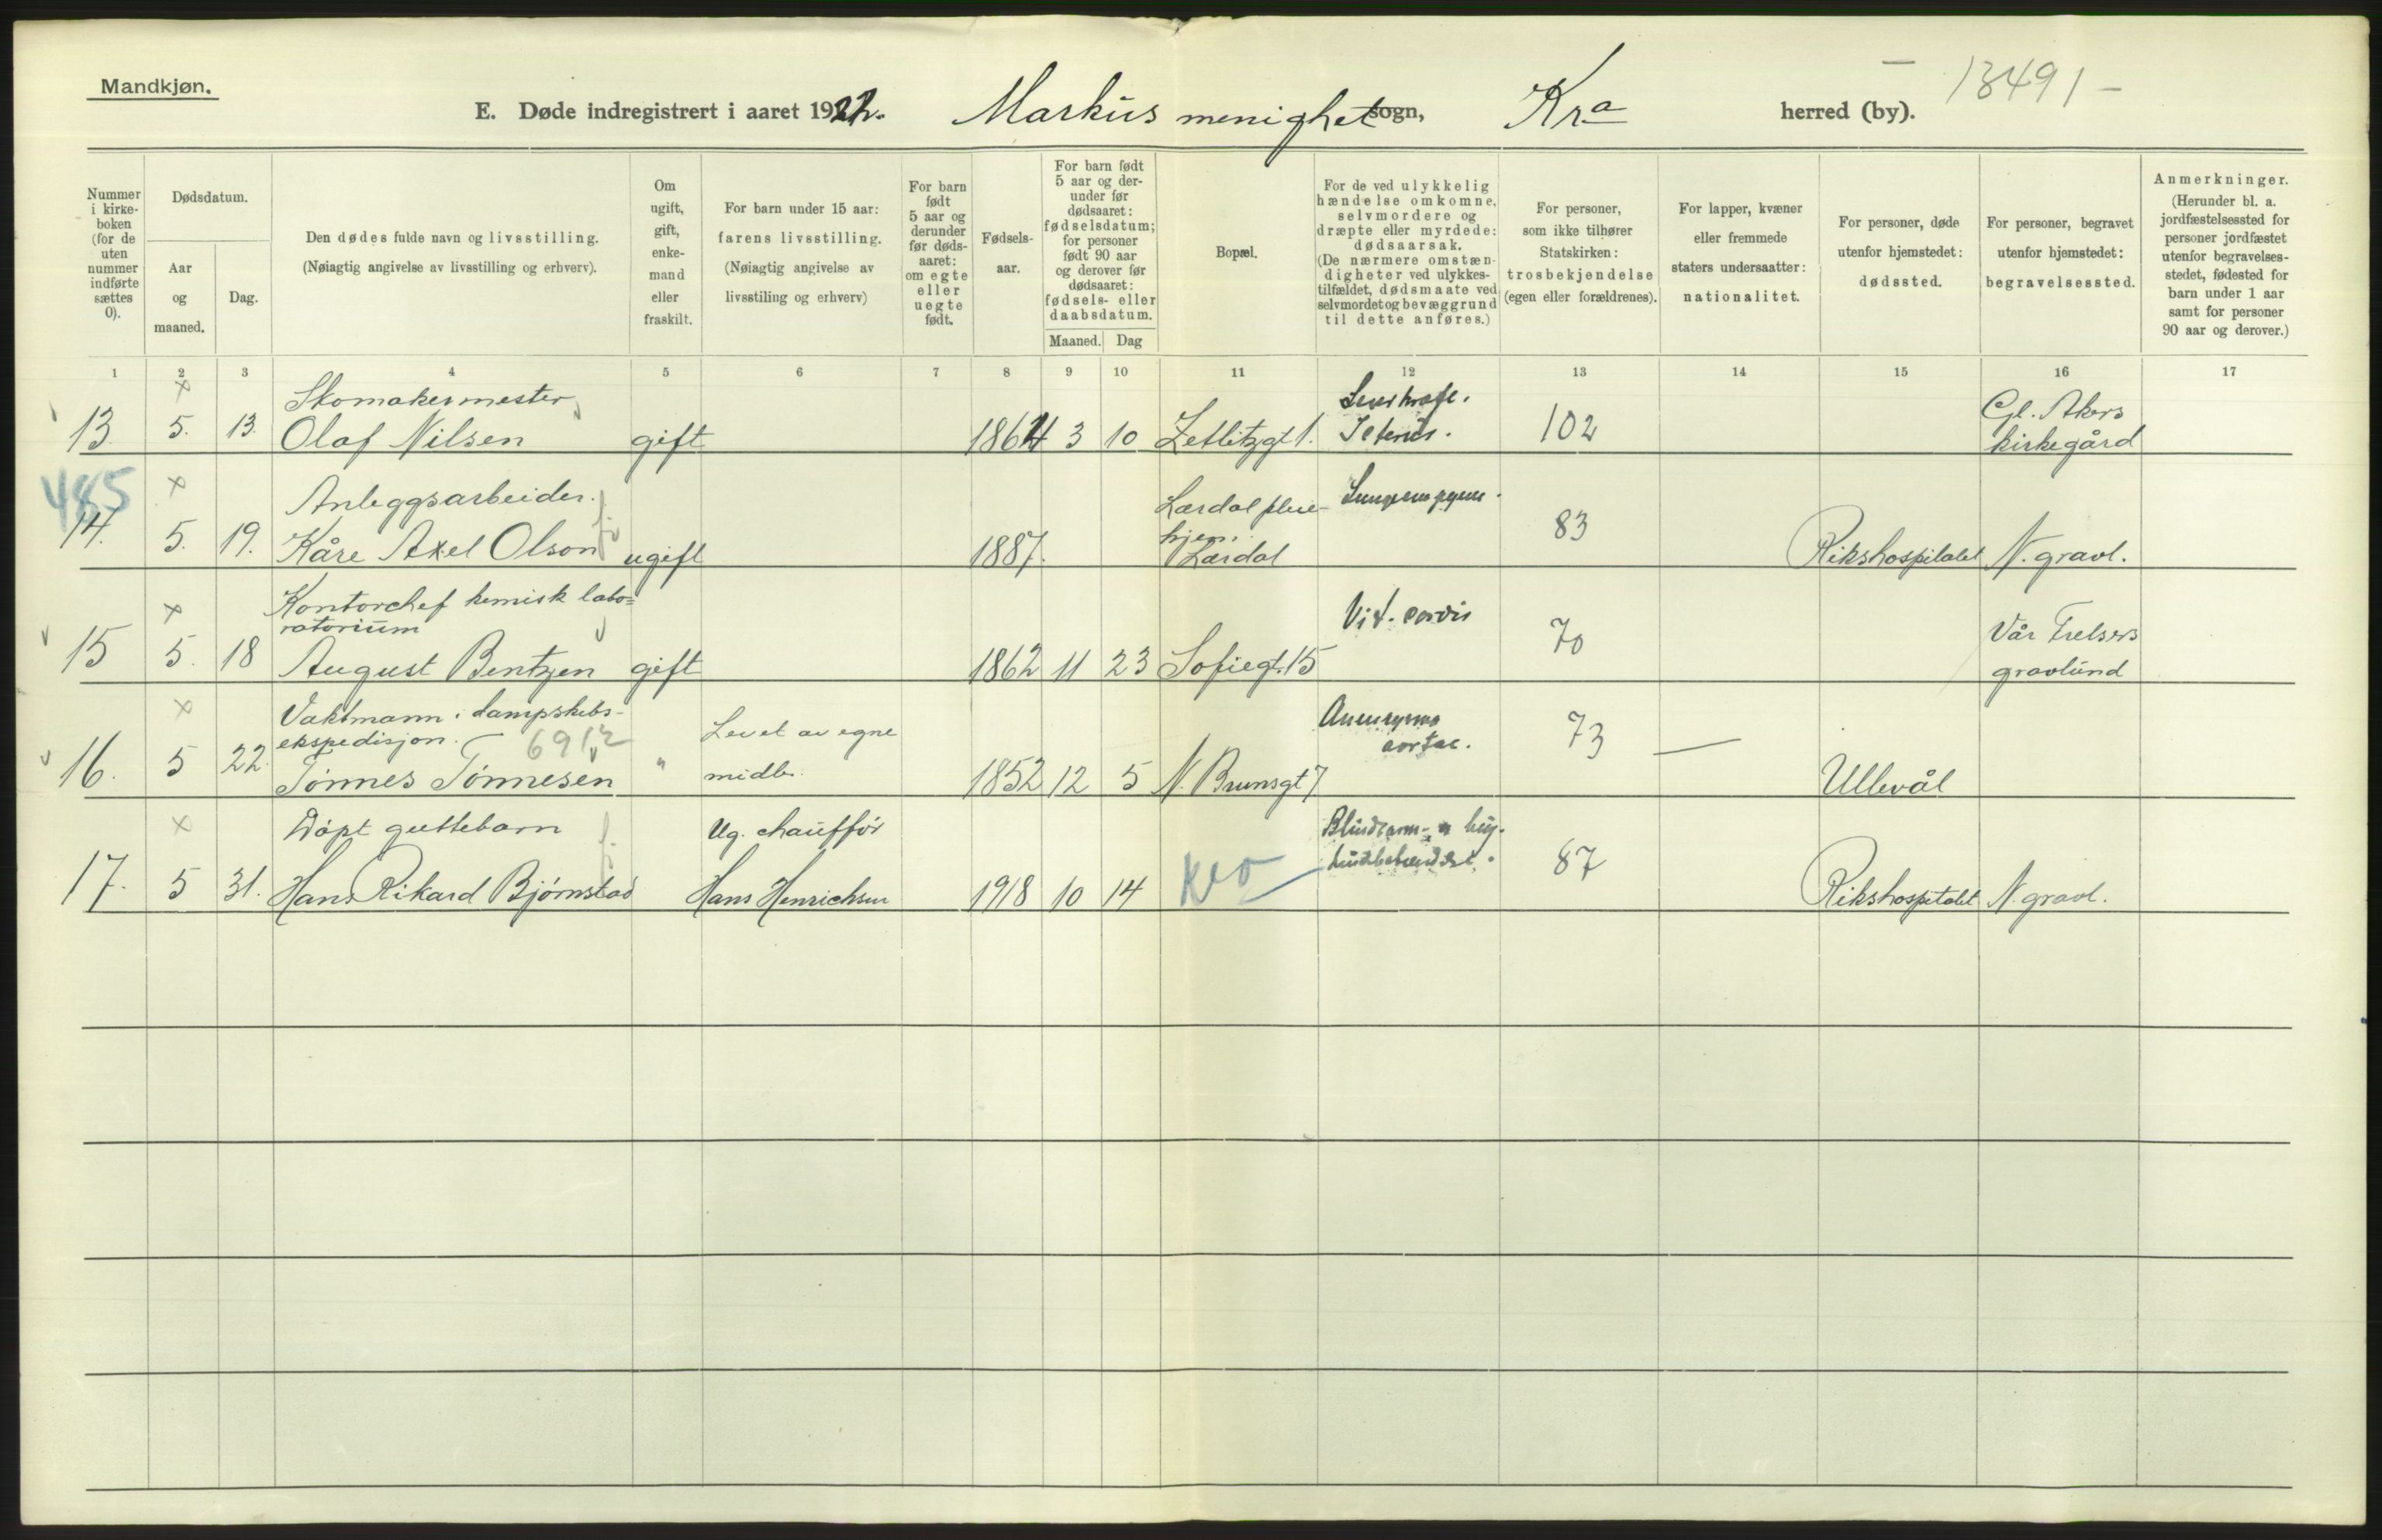 Mandkjøn.
E. Døde indregistrert i aaret 1922. Markus menighet sogn, Kra herred (by). 13491 -
Nummer i kirke- boken (for de uten nummer indførte sættes 0).
Dødsdatum.
Aar og maaned.
Dag.
Den dødes fulde navn og livsstilling.
(Nøiagtig angivelse av livsstilling og erhverv).
Om ugift, gift, enke- mand eller fraskilt.
For barn under 15 aar:
farens livsstilling.
(Nøiagtig angivelse av
livsstiling og erhverv)
For barn født 5 aar og derunder før døds- aaret: om egte eller uegte født.
Fødsels- aar.
For barn født 5 aar og der- under før dødsaaret: fødselsdatum; for personer født 90 aar og derover før dødsaaret: fødsels- eller daabsdatum.
Maaned. Dag
Bopæl.
For de ved ulykkelig hændelse omkomne, selvmordere og dræpte eller myrdede: dødsaarsak.
(De nærmere omstæn- digheter ved ulykkes- tilfældet, dødsmaate ved selvmordet og bevæggrund til dette anføres.)
For personer, som ikke tilhører Statskirken: trosbekjendelse (egen eller forældrenes).
For lapper, kvæner eller fremmede staters undersaatter: nationalitet.
For personer, døde utenfor hjemstedet: dødssted.
For personer, begravet utenfor hjemstedet: begravelsessted.
Anmerkninger.
(Herunder bl. a. jordfæstelsessted for personer jordfæstet utenfor begravelses- stedet, fødested for barn under 1 aar samt for personer 90 aar og derover.)
1 2 3 4 5 6 7 8 9 10 11 12 13 14 15 16 17
Skomakermester
13. 5. 13. Olaf Nilsen gift 1864 3 10 Zetlitzgt 1. Icterus. 102 Gl. Akers
kirkegård
485
Anleggsarbeider.
14. 5. 19. Kåre Axel Olson ugift 1887. Lærdal pleie-
hjem.
Lærdal 83 Rikshospitalet N. gravl.
Kontorchef kemisk labo=
ratorium
15 5. 18 August Bentzen gift 1862 11 23 Sofiegt. 15 Vit. cordis 70 Vår Frelsers
gravlund
Vaktmann i dampskibs-
ekspedisjon. 6912
16. 5 22. Tønnes Tønnesen " Levet av egne
midler. 1852 12 5 N. Brunsgt 7 Aneurysma
aortae. 73 — Ullevål
Døpt guttebarn Ug. chauffør
17. 5 31. Hans Rikard Bjørnstad Hans Henrichsen 1918 10 14 Kra Blindtarm- og bug-
hindebetændelse. 87 Rikshospitalet N. gravl.